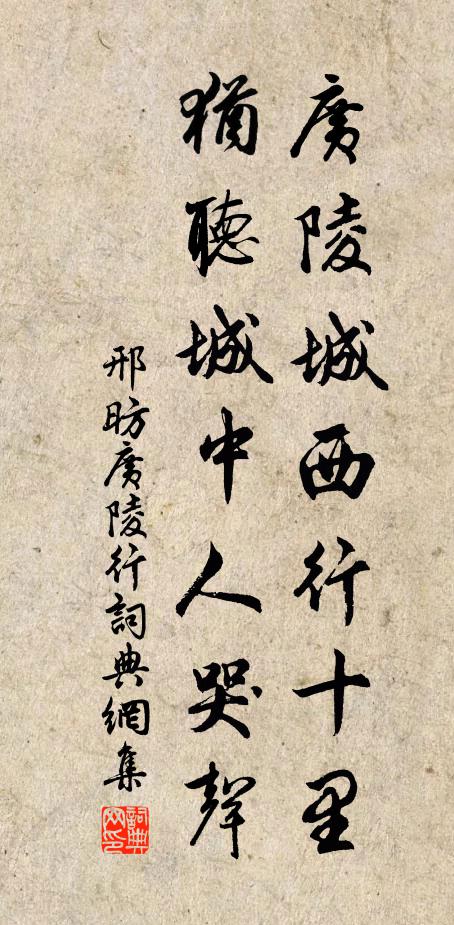 廣陵城西行十里
猶聽城中人哭聲
邢昉廣陵行詞典網集
詞典網印